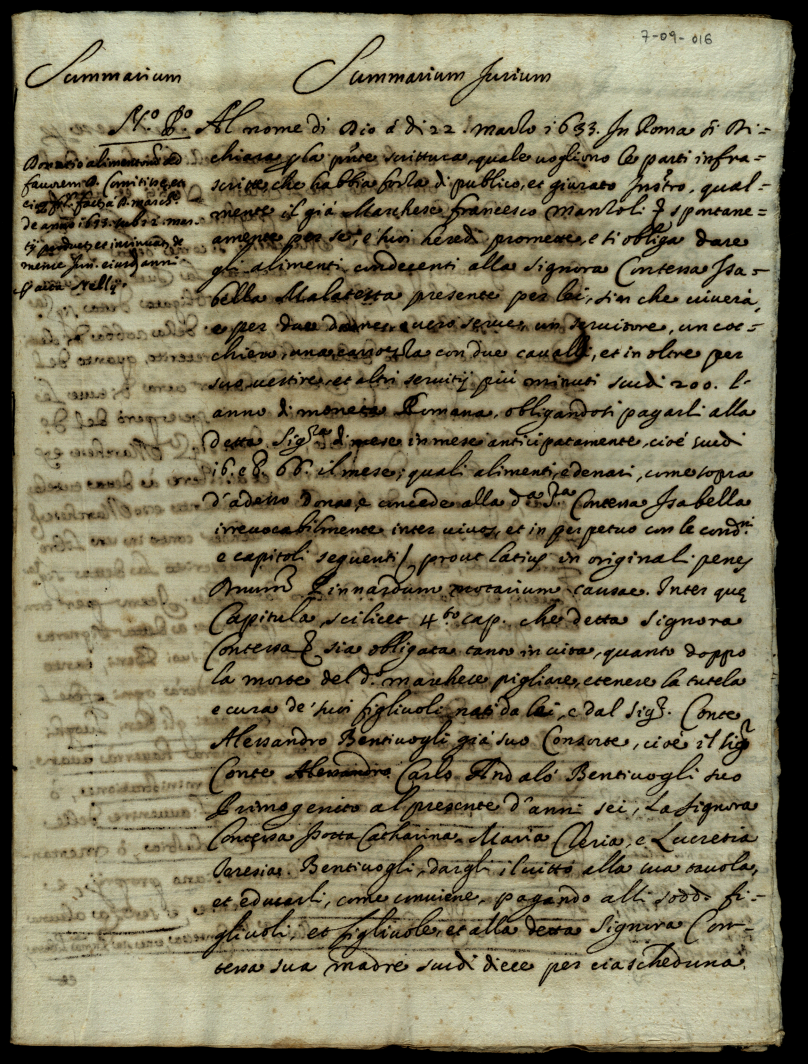 7-09-016
Summarium Summarium Jurium
N.o P.o Al nome di Dio à di 22. marzo 1633. In Roma si Di=
chiara p la pnte scrittura, quale vogliono le parti infra=
scritte, che habbia forza di publico, et giurato Instro, qual=
mente il già Marchese francesco Manzoli & spontane=
amente per se, e suoi heredi promette, e si obliga dare
gli alimenti condecenti alla Signora Contessa Isa=
bella Malatesta presente per lei, sin che viverà,
e per due donne, o vero serve, un servitore, un coc=
chiero, una carrozza con due cavalli, et in oltre per
suo vestire, et altri servitij più minuti scudi 200. l'
anno di moneta Romana, obligandosi pagarli alla
detta Sig.ra di mese in mese anticipatamente, cioè scudi
16. e 66. il mese; quali alimenti, e denari, come sopra
d'adesso dona, e concede alla d.a S.ra Contessa Isabella
irrevocabilmente inter vivos, et in perpetuo con le cond.ni
e capitoli seguenti / prout latius in originali penes
Pinnardum notarium causae. Inter quę
Capitula, scilicet 4.to cap. che detta Signora
Contessa & sia obligata tanto in vita, quanto doppo
la morte del d.o marchese pigliare, e tenere la tutela
e cura de' suoi figlivoli nati da lei, e dal Sig.r Conte
Alessandro Bentivogli già suo Consorte, cioè il Sig.r
Conte Alessandro Carlo Andalò Bentivogli suo
Primogenito al presente d'anni sei, La Signora
Contessa Catharina Maria Cleria, e Lucretia
Teresia Bentivogli, dargli il vitto alla sua tavola,
et educarli, come conviene, pagando alli sodd.i fi=
glivoli, et figlivole, et alla detta Signora Con=
tessa sua madre scudi diece per ciascheduna
Donatio alimentorum
favorem D. Comitissae
facta à March.e
de anno 1633. sub 22. mar=
tij
mense Jun. eiusd. anni